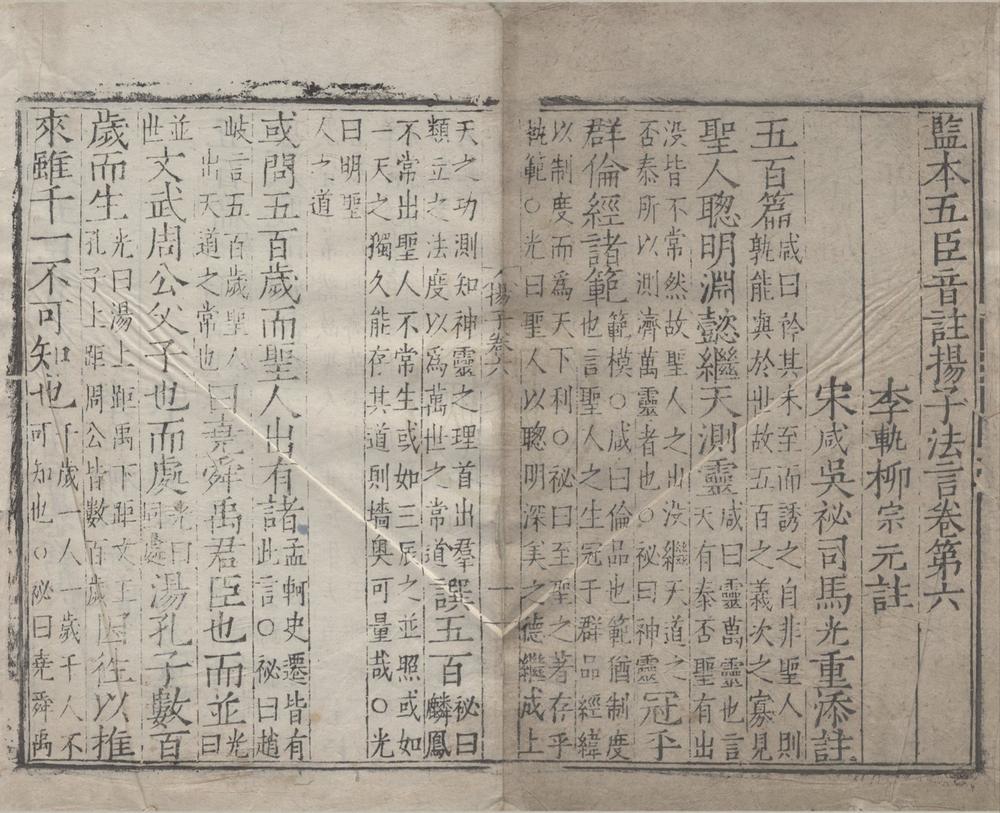 監本五臣音註揚子法言卷第六
李軌柳宗元註
宋咸吳祕司馬光重添註
五百篇咸曰衿其未至而誘之自非聖人則孰能與於世故五百之義次之寡見
聖人聦明淵懿繼天測靈咸曰靈萬靈也言天有泰否聖有出
没皆不常然故聖人之出没繼天道之否泰所以測濟萬靈者也○祕曰神靈冠乎
群倫經諸範範模○咸曰倫品也範猶制度也言聖人之生冠于群品經緯
以制度而為天下利○祕曰至聖之著存乎執範○光曰聖人以聦明深美之德繼成上
揚子卷六
一
天之功測知神靈之理首出羣類立之法度以為萬世之常道譔五百祕曰麟鳳
不常出聖人不常生或如三辰之並照或如一天之獨久能存其道則墻奥可量哉○光
曰明聖人之道
或問五百歲而聖人出有諸孟軻史遷皆有此言○祕曰趙
岐言五百歲聖人一出天道之常也曰堯舜禹君臣也而並光曰
並世文武周公父子也而處光曰同處湯孔子數百
歲而生光曰湯上距禹下距文王孔子上距周公皆數百歲因往以推
來雖千一不可知也千歲一人一歲千人不可知也○祕曰堯舜禹